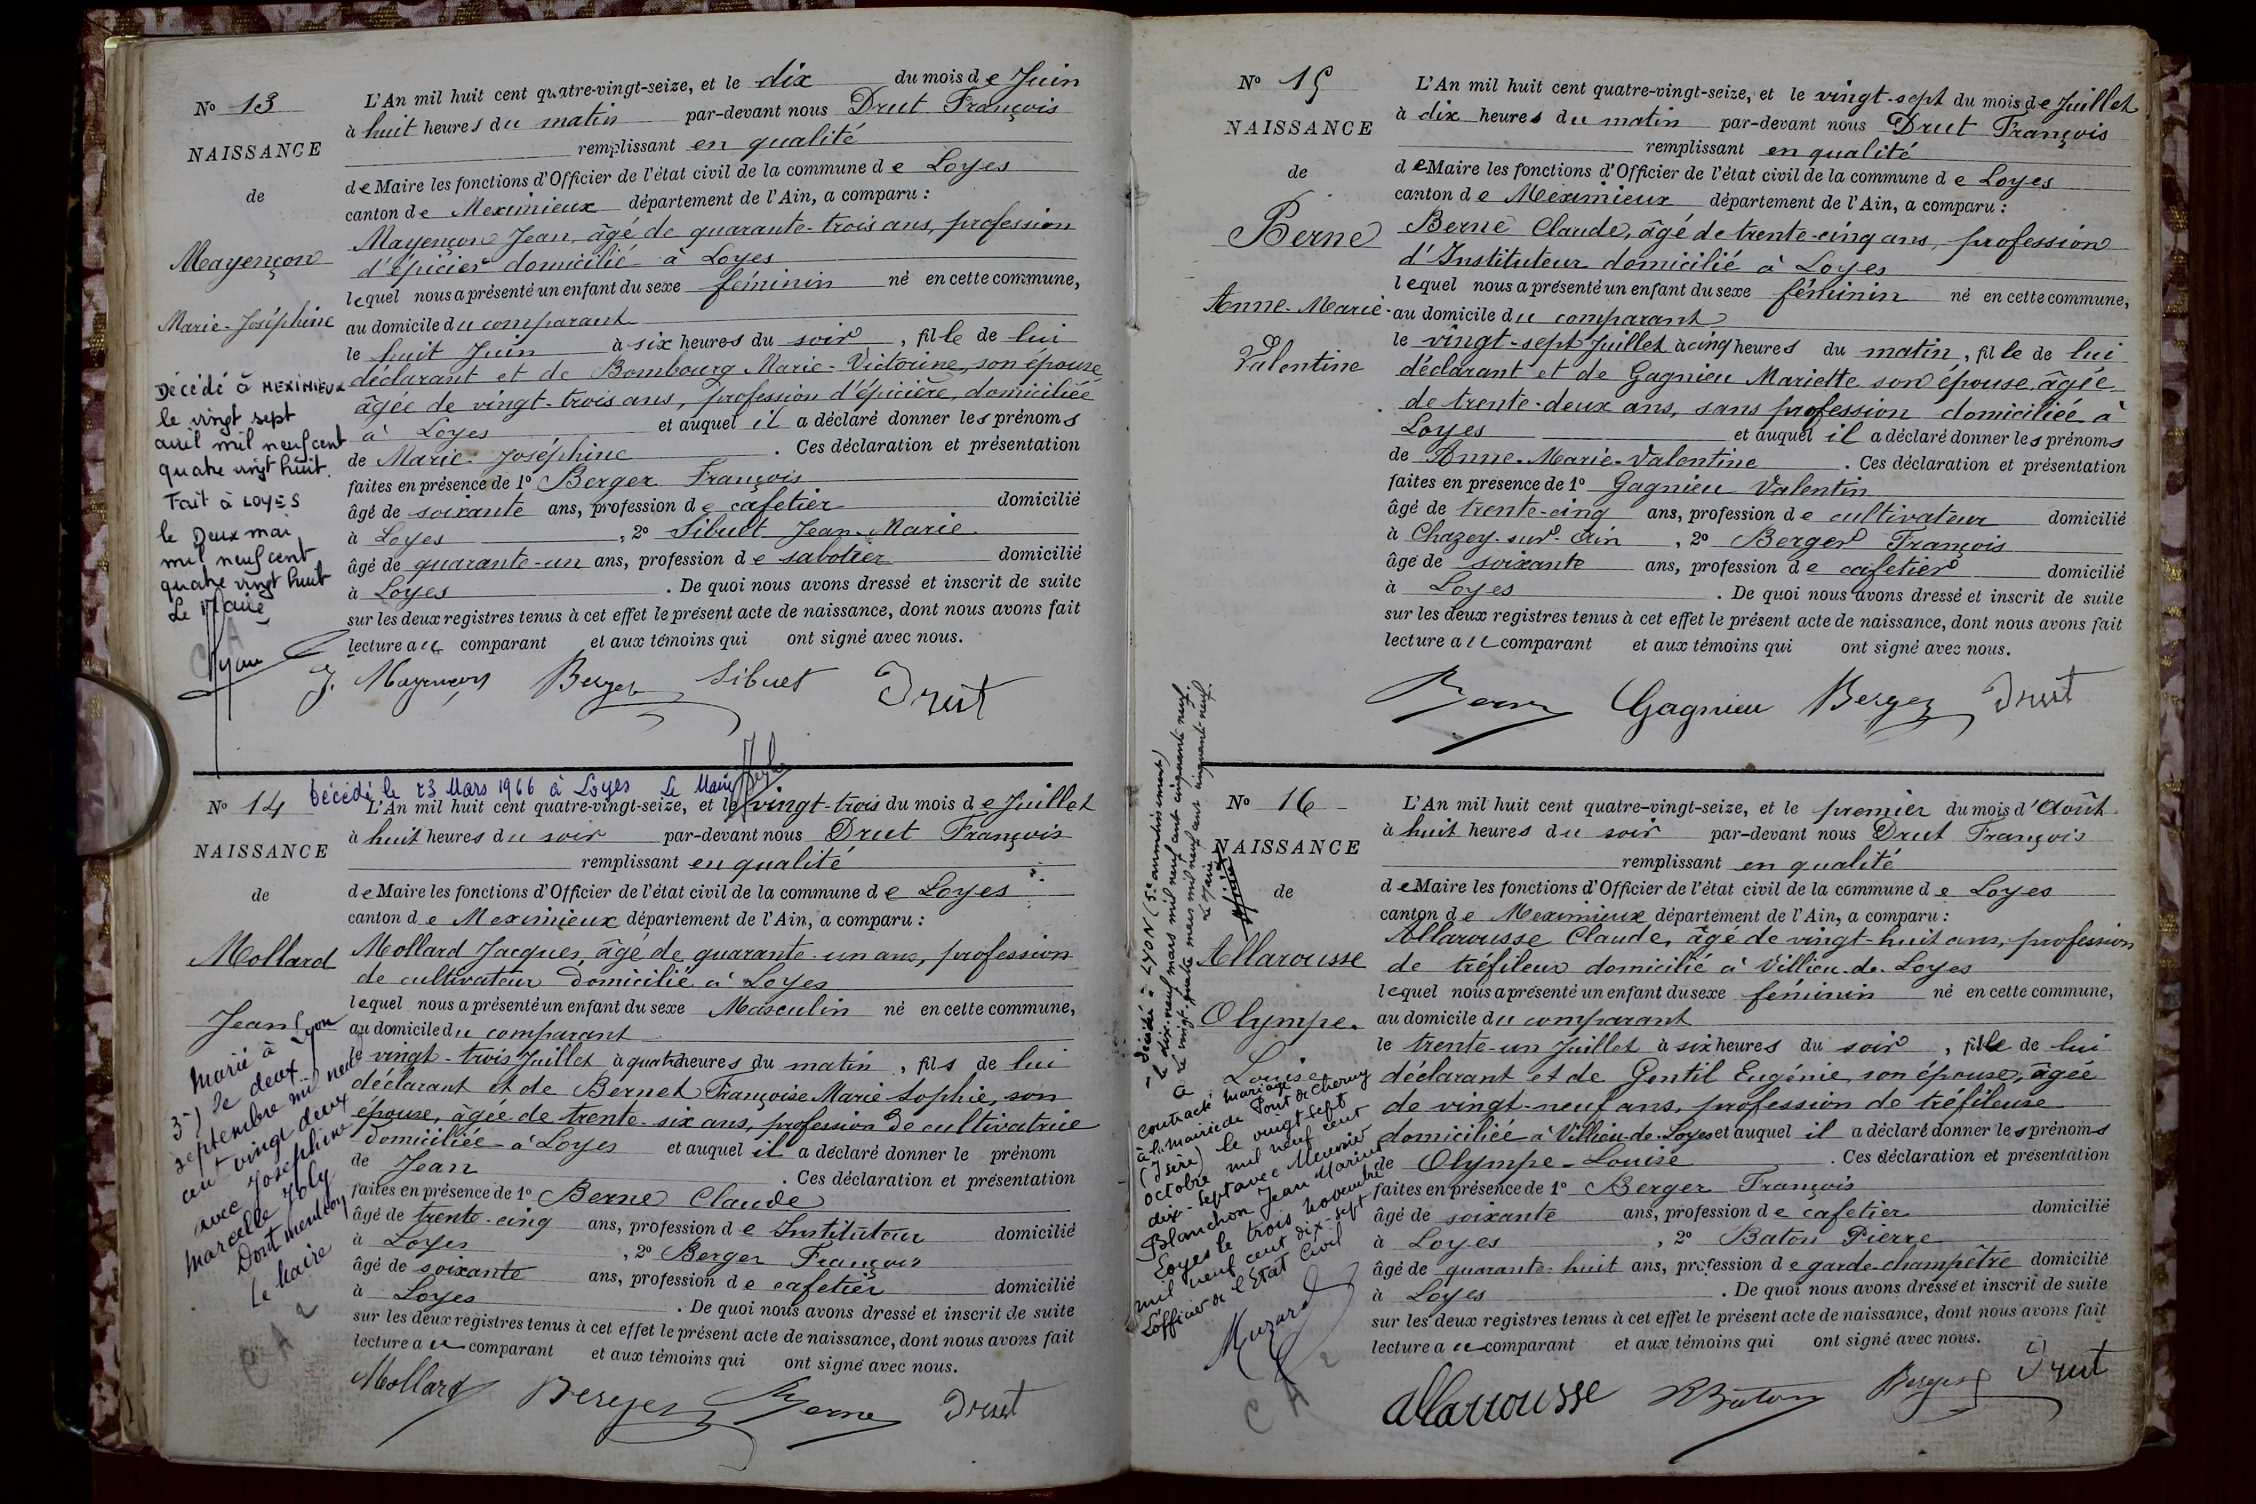 N° 13
NAISSANCE
de
Mayençon
Marie-Joséphine
Décédé à MEXIMIEUX
le vingt sept
avril mil neuf cent
quatre vingt huit.
Fait à LOYES
le Deux mai
mil neuf cent
quatre vingt huit
Le Maire
L'An mil huit cent quatre-vingt-seize, et le dix du mois de Juin
à huit heures du matin par-devant nous Drut François
remplissant en qualité
de Maire les fonctions d'Officier de l'état civil de la commune de Loyes
canton de Meximieux département de l'Ain, a comparu :
Mayençon Jean, âgé de quarante-trois ans, profession
d'épicier domicilié à Loyes
lequel nous a présenté un enfant du sexe féminin né en cette commune,
au domicile du comparant
le huit Juin à six heures du soir, fille de lui
déclarant et de Bombourg Marie-Victorine, son épouse
âgée de vingt-trois ans, profession d'épicière, domiciliée
à Loyes et auquel il a déclaré donner les prénoms
de Marie-Joséphine. Ces déclaration et présentation
faites en présence de 1° Berger François
âgé de soixante ans, profession de cafetier domicilié
à Loyes, 2° Sibuet Jean-Marie
âgé de quarante-un ans, profession de sabotier domicilié
à Loyes. De quoi nous avons dressé et inscrit de suite
sur les deux registres tenus à cet effet le présent acte de naissance, dont nous avons fait
lecture au comparant et aux témoins qui ont signé avec nous.
J. Mayençon Berger Sibuet Drut
Décédé le 23 Mars 1966 à Loyes Le Maire
N° 14
NAISSANCE
de
Mollard
Jean
Marié à Lyon
3e) le deux
septembre mil neuf
cent vingt deux
avec Joséphine
Marcelle Joly
Dont mention
Le Maire
C A 2
L'An mil huit cent quatre-vingt-seize, et le vingt-trois du mois de Juillet
à huit heures du soir par-devant nous Drut François
remplissant en qualité
de Maire les fonctions d'Officier de l'état civil de la commune de Loyes
canton de Meximieux département de l'Ain, a comparu :
Mollard Jacques, âgé de quarante-un ans, profession
de cultivateur domicilié à Loyes
lequel nous a présenté un enfant du sexe Masculin né en cette commune,
au domicile du comparant
le vingt-trois Juillet à quatre heures du matin, fils de lui
déclarant et de Bernet Françoise Marie Sophie, son
épouse, âgée de trente-six ans, profession de cultivatrice
domiciliée à Loyes et auquel il a déclaré donner le prénom
de Jean. Ces déclaration et présentation
faites en présence de 1° Berne Claude
âgé de trente-cinq ans, profession de Instituteur domicilié
à Loyes, 2° Berger François
âgé de soixante ans, profession de cafetier domicilié
à Loyes. De quoi nous avons dressé et inscrit de suite
sur les deux registres tenus à cet effet le présent acte de naissance, dont nous avons fait
lecture au comparant et aux témoins qui ont signé avec nous.
Mollard Berger Berne Drut
N° 15
NAISSANCE
de
Berne
Anne-Marie-
Valentine
L'An mil huit cent quatre-vingt-seize, et le vingt-sept du mois de Juillet
à dix heures du matin par-devant nous Drut François
remplissant en qualité
de Maire les fonctions d'Officier de l'état civil de la commune de Loyes
canton de Meximieux département de l'Ain, a comparu :
Berne Claude, âgé de trente-cinq ans, profession
d'Instituteur domicilié à Loyes
lequel nous a présenté un enfant du sexe féminin né en cette commune,
au domicile du comparant
le vingt-sept Juillet à cinq heures du matin, fille de lui
déclarant et de Gagnieu Mariette son épouse, âgée
de trente-deux ans, sans profession domiciliée à
Loyes et auquel il a déclaré donner les prénoms
de Anne-Marie-Valentine. Ces déclaration et présentation
faites en présence de 1° Gagnieu Valentin
âgé de trente-cinq ans, profession de cultivateur domicilié
à Chazey-sur-Ain, 2° Berger François
âgé de soixante ans, profession de cafetier domicilié
à Loyes. De quoi nous avons dressé et inscrit de suite
sur les deux registres tenus à cet effet le présent acte de naissance, dont nous avons fait
lecture au comparant et aux témoins qui ont signé avec nous.
Berne Gagnieu Berger Drut
N° 16
NAISSANCE
de
Allarousse
Olympe-
Louise
- Décédée à LYON (5e arrondissement)
le dix-neuf mars mil neuf cent cinquante neuf.
Le vingt quatre mars mil neuf cent cinquante-neuf.
Le Maire
A
contracté mariage
à la mairie de Pont de Cheruy
(Isère) le vingt sept
octobre mil neuf cent
dix-sept avec Meunier
Blanchon Jean Marius
Loyes le trois novembre
mil neuf cent dix-sept
L'officier de l'Etat Civil
Muzard
C A 2
L'An mil huit cent quatre-vingt-seize, et le premier du mois d'Août
à huit heures du soir par-devant nous Drut François
remplissant en qualité
de Maire les fonctions d'Officier de l'état civil de la commune de Loyes
canton de Meximieux département de l'Ain, a comparu :
Allarousse Claude, âgé de vingt-huit ans, profession
de tréfileur domicilié à Villieu-de-Loyes
lequel nous a présenté un enfant du sexe féminin né en cette commune,
au domicile du comparant
le trente-un Juillet à six heures du soir, fille de lui
déclarant et de Gentil Eugénie, son épouse, âgée
de vingt-neuf ans, profession de tréfileuse
domiciliée à Villieu-de-Loyes et auquel il a déclaré donner les prénoms
de Olympe-Louise. Ces déclaration et présentation
faites en présence de 1° Berger François
âgé de soixante ans, profession de cafetier domicilié
à Loyes, 2° Baton Pierre
âgé de quarante-huit ans, profession de garde-champêtre domicilié
à Loyes. De quoi nous avons dressé et inscrit de suite
sur les deux registres tenus à cet effet le présent acte de naissance, dont nous avons fait
lecture au comparant et aux témoins qui ont signé avec nous.
allarousse Baton Berger Drut